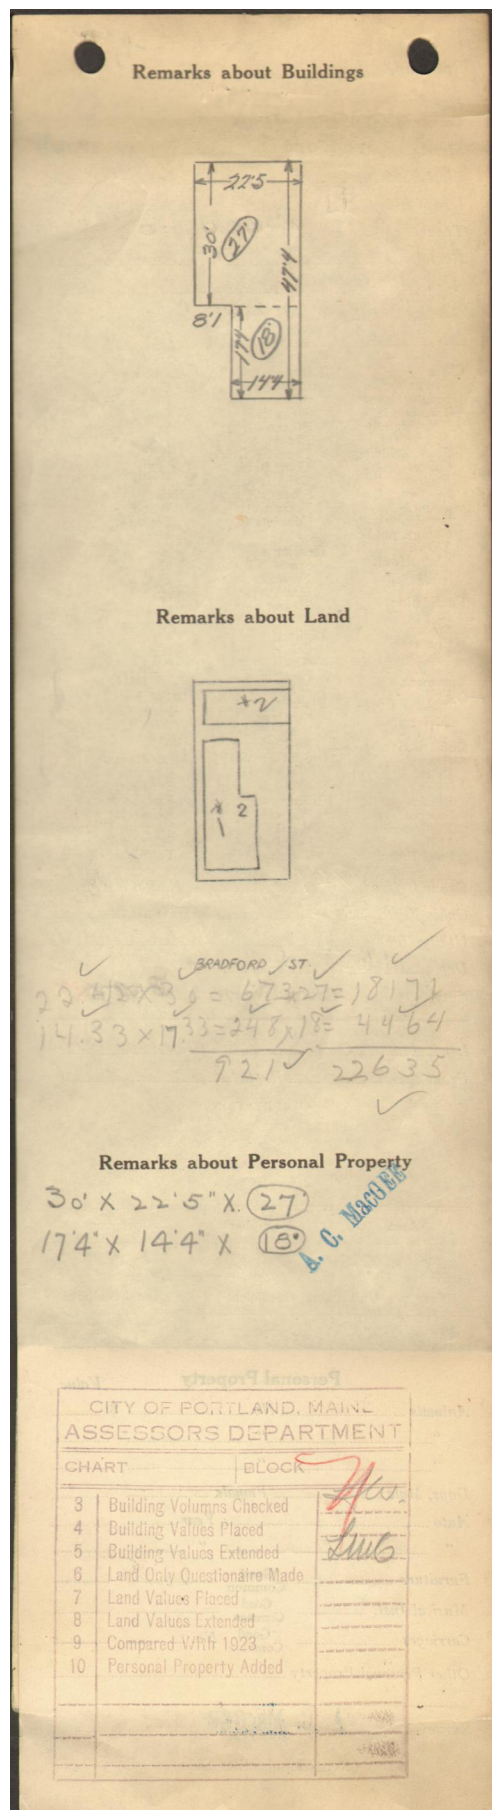 Remarks about Buildings
22'5
30'
27'
47'4
8'1
17'4
18'
14'4
Remarks about Land
* 2
* 2
1
BRADFORD ST.
22.412 x 30 = 673 x 27 = 18171
14.33 x 17.33 = 248 x 18 = 4464
921 22635
Remarks about Personal Property
30' X 22'5" X. 27'
17'4" X 14'4" X 18'
A. C. MacGEE
Personal Property
CITY OF PORTLAND, MAINE
ASSESSORS DEPARTMENT
CHART BLOCK
3 Building Volumns Checked
4 Building Values Placed
5 Building Values Extended
6 Land Only Questionaire Made
7 Land Values Placed
8 Land Values Extended
9 Compared W/Rfr 1923
10 Personal Property Added